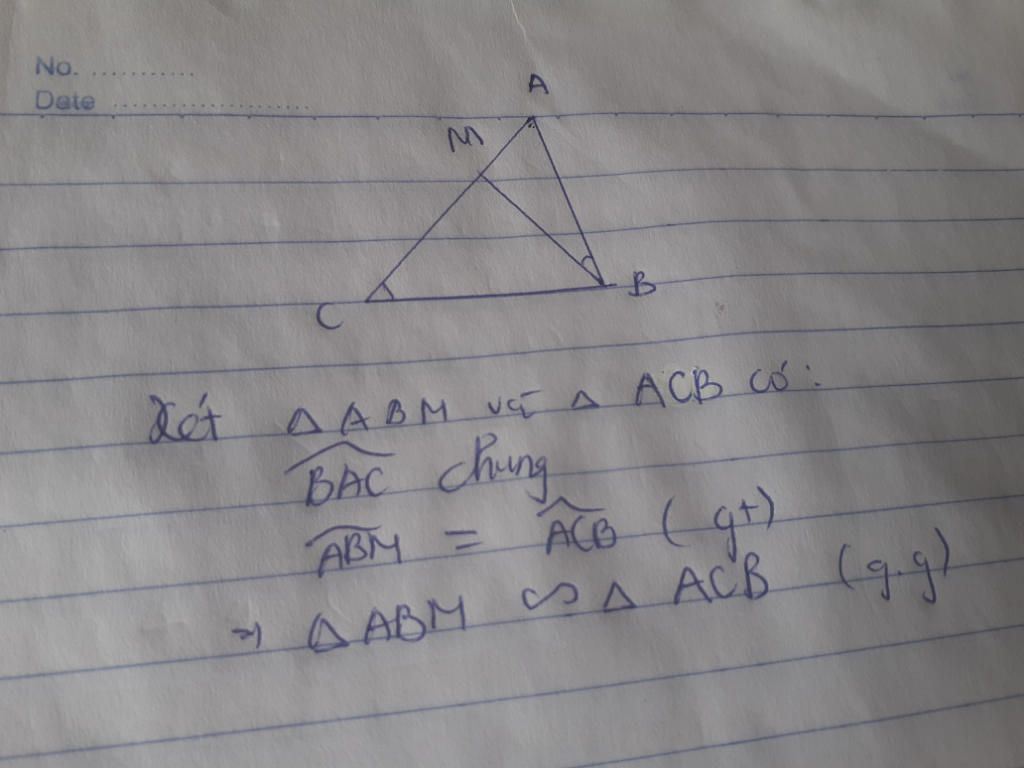 No. ...........
Date .....................
A
M
B
C
Xét △ ABM và △ ACB có:
$\widehat{BAC}$ chung
$\widehat{ABM}$ = $\widehat{ACB}$ (gt)
⇒ △ ABM ∽ △ ACB (g.g)